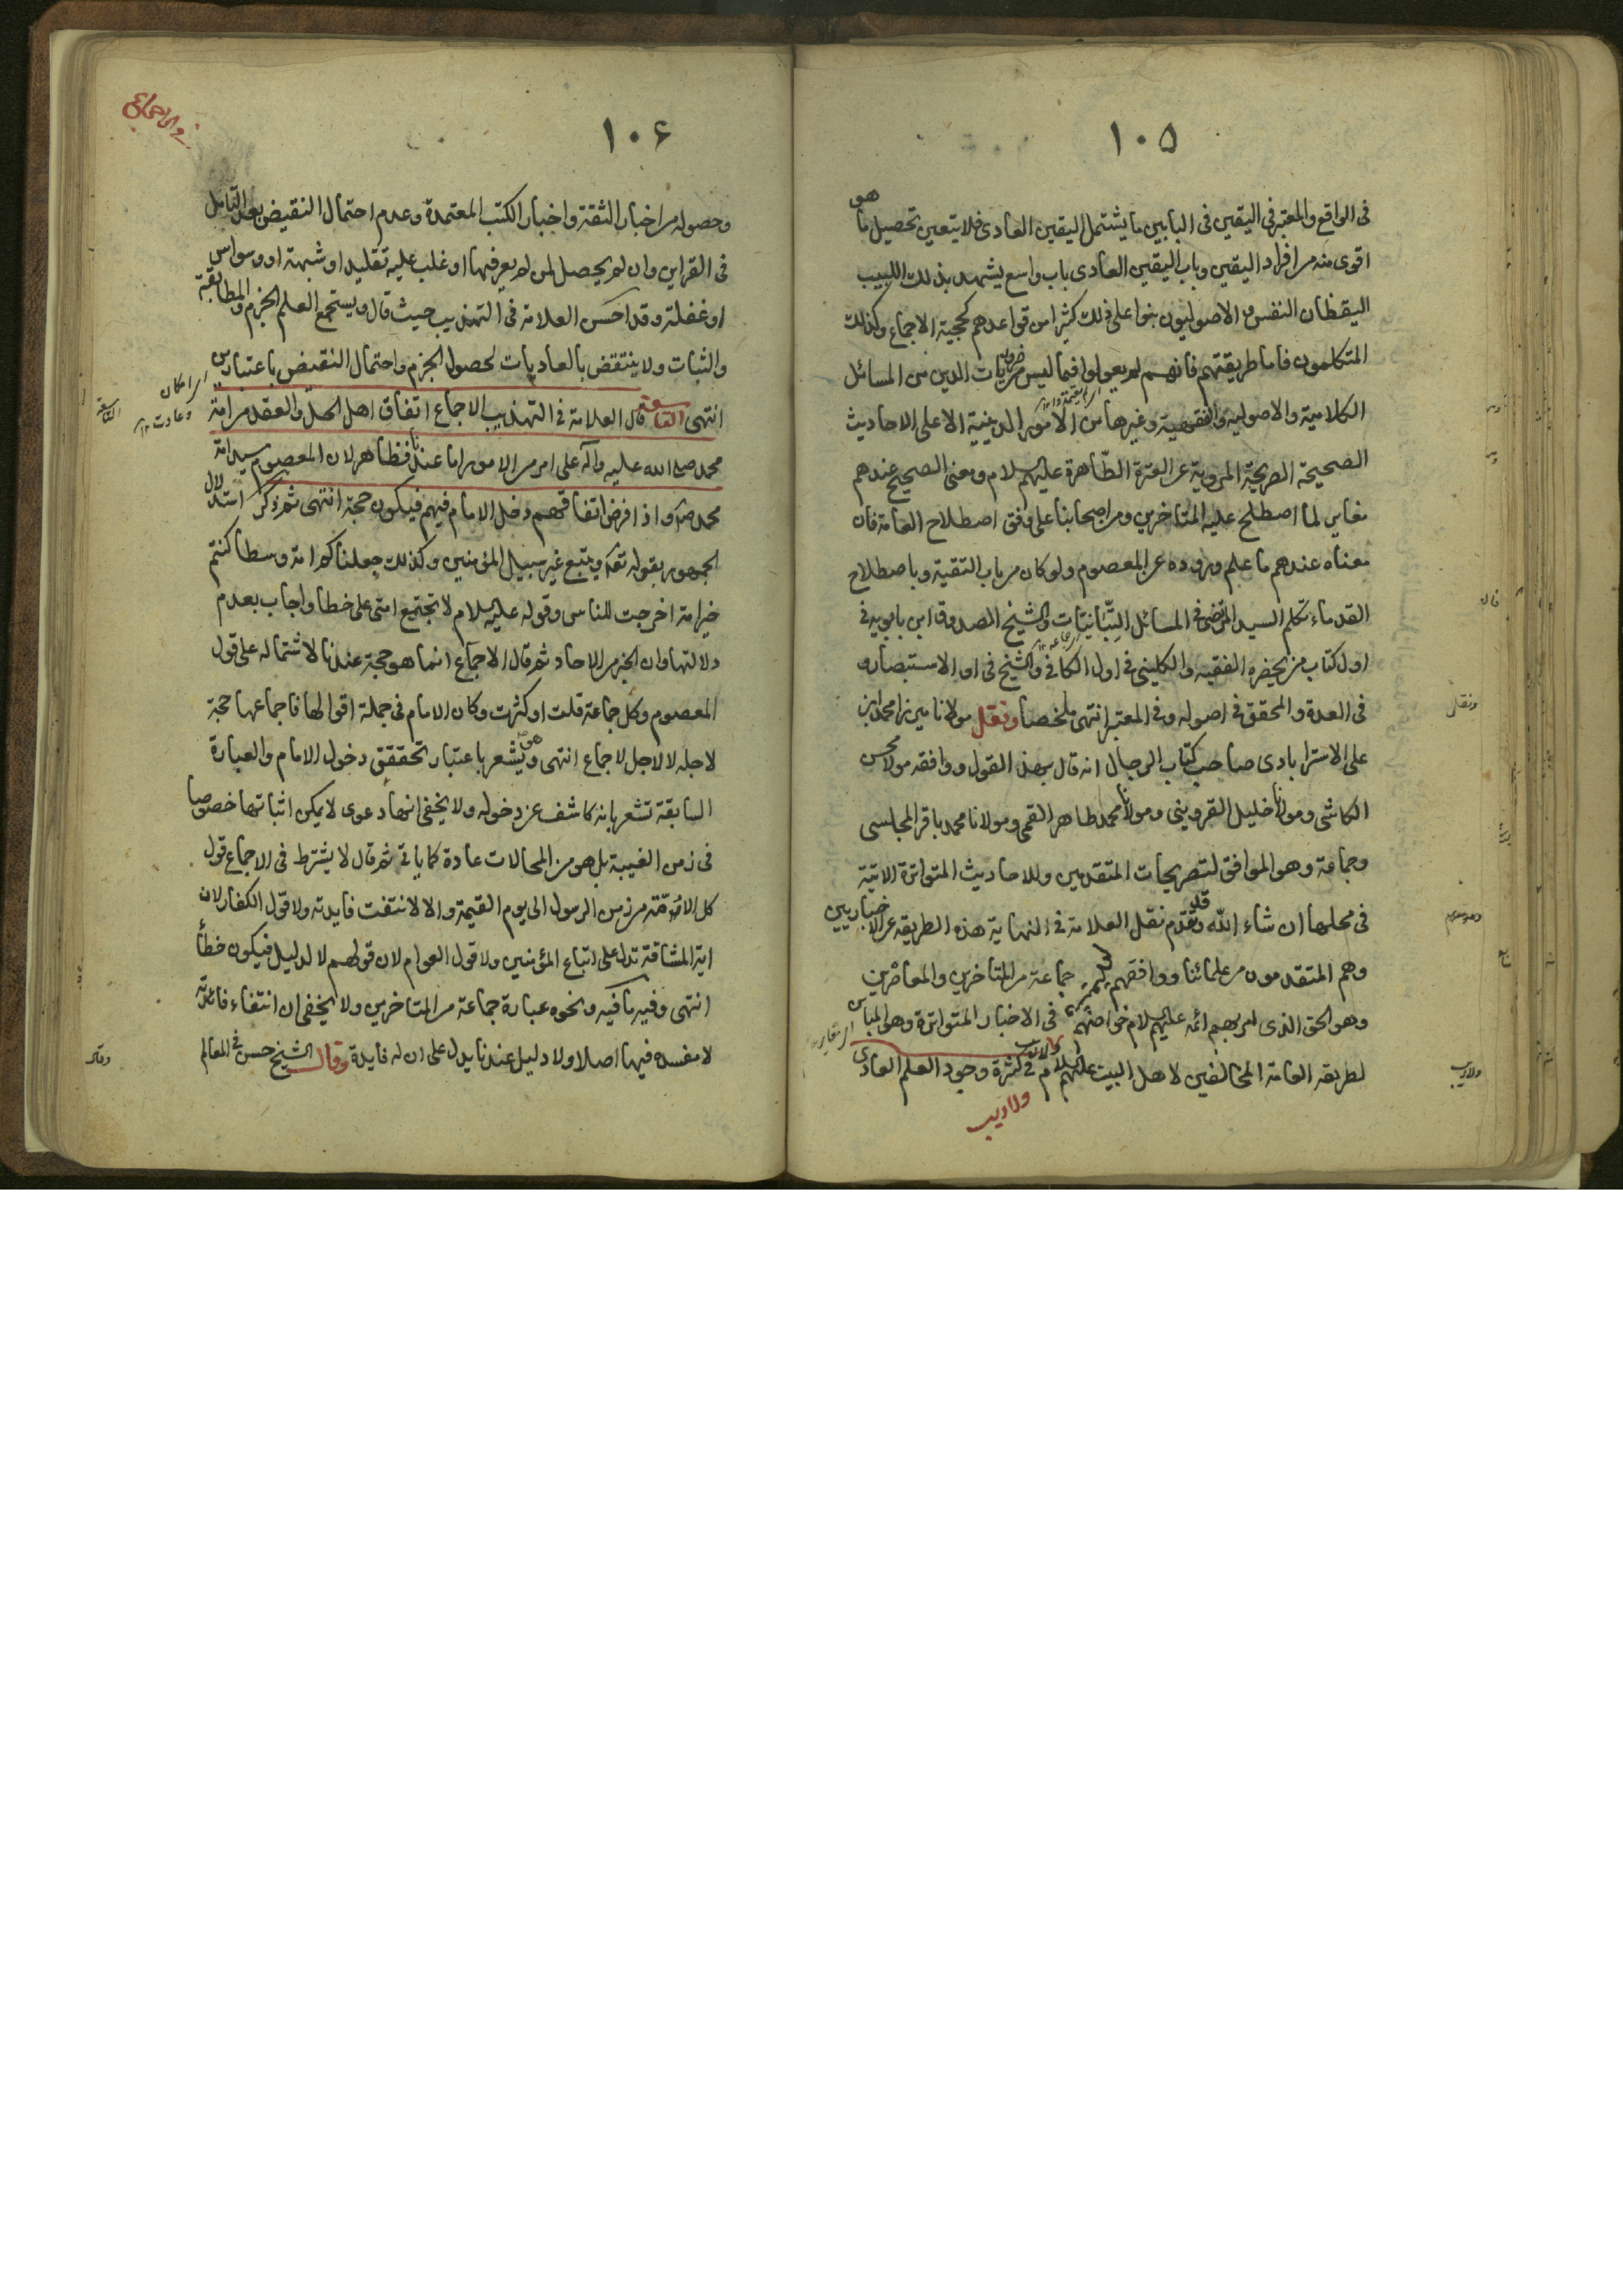 ١٠٥
فى الواقع والمعتبر فى اليقين فى البابين ما يشتمل اليقين العادى فلا يتعين تحصيل ما هو
اقوى منه من افراد اليقين وباب اليقين العادى باب واسع يشهد بذلك اللبيب
اليقظان النفس والاصوليون بنوا على ذلك كثيرا من قواعدهم كحجية الاجماع وكذلك
المتكلمون فاما طريقتهم فانهم لم يعولوا فيما ليس من ضروريات الدين من المسائل
الكلامية والاصولية والفقهية وغيرها من الامور الدينية الا على الاحاديث
الصحيحة الصريحة المروية عن العترة الطاهرة عليهم السلام ومعنى الصحيح عندهم
مغاير لما اصطلح عليه المتاخرين ومن اصحابنا على وفق اصطلاح العامة فان
معناه عندهم ما علم وروده عن المعصوم ولو كان من باب التقية وباصطلاح
القدماء تكلم السيد المرتضى فى المسائل التبّانيّات والشيخ الصدوق ابن بابويه فى
اول كتاب من يحضره الفقيه والكلينى فى اول الكافى والشيخ فى اول الاستبصار و
فى العدة والمحقق فى اصوله وفى المعتبر انتهى ملخصا ونقل مولانا ميرزا محمد ابن
على الاسترابادى صاحب كتاب الرجال انه قال بهذا القول ووافقه مولا محسن
الكاشى ومولانا خليل القزوينى ومولانا محمد طاهر القمى ومولانا محمد باقر المجلسى
وجماعة وهو الموافق لتصريحات المتقدمين وللاحاديث المتواترة الاتية
فى محلها ان شاء الله وقد تقدم نقل العلامة فى النهاية هذه الطريقه عن الاخباريين
وهم المتقدمون من علمائنا ووافقهم جماعة من المتاخرين والمعاصرين
وهو الحق الذى امر بهم ائمه عليهم السلام خواصهم فى الاخبار المتواترة وهو المباين
لطريقه العامة المخالفين لاهل البيت عليهم السلام ولا ريب فى كثرة وجود العلم العادى
ولا ريب
١٠٦
وحصوله من اخبار الثقة واخبار الكتب المعتمدة وعدم احتمال النقيض بعد التامل
فى القراين وان لم يحصل لمن لم يعرفها او غلب عليه تقليد او شبهة او وسواس
او غفلة وقد احسن العلامة فى التهذيب حيث قال ويستجمع العلم الجزم والمطابقة
والثبات ولا ينتقض بالعاديات لحصول الجزم واحتمال النقيض باعتبارين
انتهى التاسعة قال العلامة فى التهذيب الاجماع اتفاق اهل الحل والعقد من امة
محمد صلى الله عليه وآله على امر من الامور اما عندنا فظاهر لان المعصوم سيد امة
محمد ص وآ واذا فرض اتفاقهم دخل الامام فيهم فيكون حجة انتهى ثم ذكر استدلال
الجمهور بقوله تعه ويتبع غير سبيل المؤمنين وكذلك جعلناكم امة وسطا كنتم
خير امة اخرجت للناس وقوله عليه السلام لا تجتمع امتى على خطا واجاب بعدم
دلالتها وان الخبر من الاحاد ثم قال الاجماع انما هو حجة عندنا لاشتماله على قول
المعصوم وكل جماعة قلت او كثرت وكان الامام فى جملة اقوالها فاجماعها حجة
لاجله لا لاجل لاجماع انتهى وهو يشعر باعتبار تحققق دخول الامام والعبارة
السابقة تشعر بانه كاشف عن دخوله ولا يخفى انها دعوى لا يمكن اثباتها خصوصا
فى زمن الغيبة بل هو من المحالات عادة كما ياتى ثم قال لا يشترط فى الاجماع قول
كل الامة من زمن الرسول الى يوم القيمة والا لانتفت فايدته ولا قول الكفار لان
اية المشاقة تدل على اتباع المؤمنين ولا قول العوام لان قولهم لا لدليل فيكون خطأ
انتهى وفيه ما فيه ونحوه عبارة جماعة من المتاخرين ولا يخفى ان انتفاء فائدته
لا مفسده فيها اصلا ولا دليل عندنا يدل على ان له فايدة وقال الشيخ حسن فى المعالم